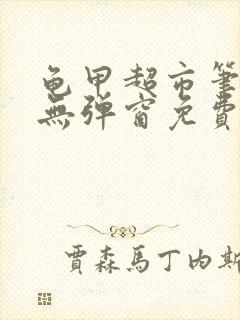 龟甲超市筆
無彈窗免費
賈森馬丁內斯